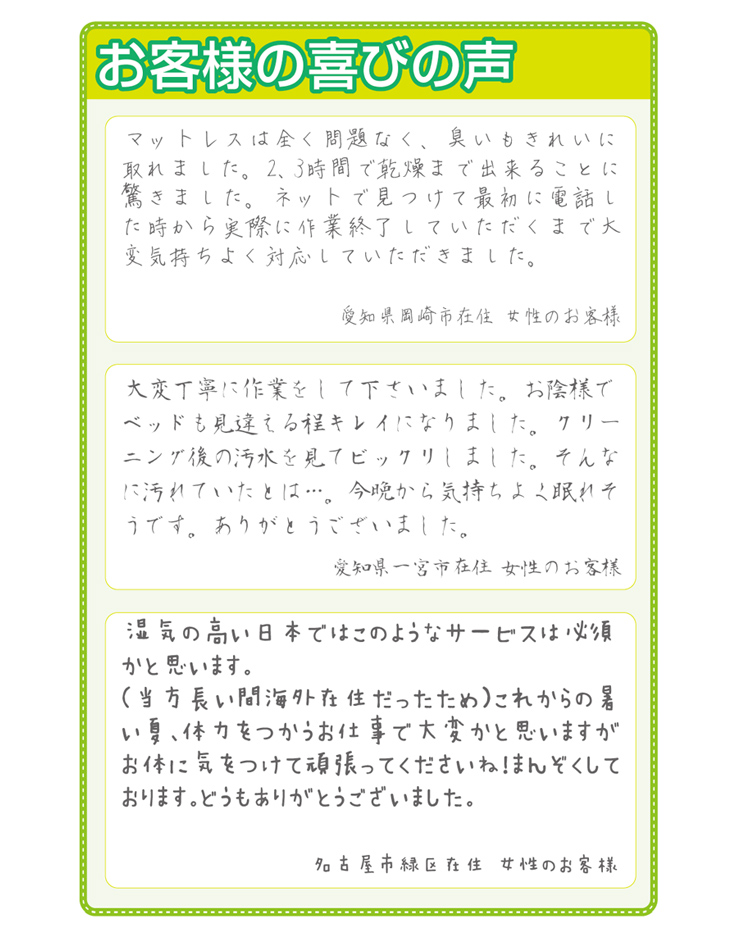 お客様の喜びの声
マットレスは全く問題なく、臭いもきれいに
取れました。2、3時間で乾燥まで出来ることに
驚きました。ネットで見つけて最初に電話し
た時から実際に作業終了していただくまで大
変気持ちよく対応していただきました。
愛知県岡崎市在住 女性のお客様
大変丁寧に作業をして下さいました。お陰様で
ベッドも見違える程キレイになりました。クリー
ニング後の汚水を見てビックリしました。そんな
に汚れていたとは…。今晩から気持ちよく眠れそ
うです。ありがとうございました。
愛知県一宮市在住 女性のお客様
湿気の高い日本ではこのようなサービスは必須
かと思います。
(当方長い間海外在住だったため)これからの暑
い夏、体力をつかうお仕事で大変かと思いますが
お体に気をつけて頑張ってくださいね!まんぞくして
おります。どうもありがとうございました。
名古屋市緑区在住 女性のお客様